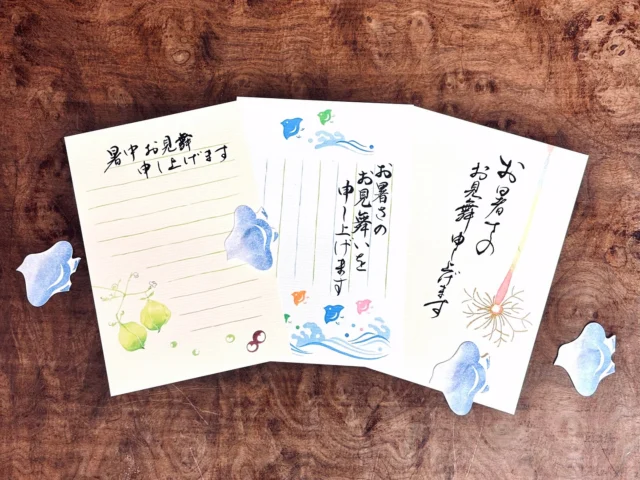 暑中お見舞
申し上げます
お暑さの
お見舞いを
申し上げます
お暑さの
お見舞申し上げます